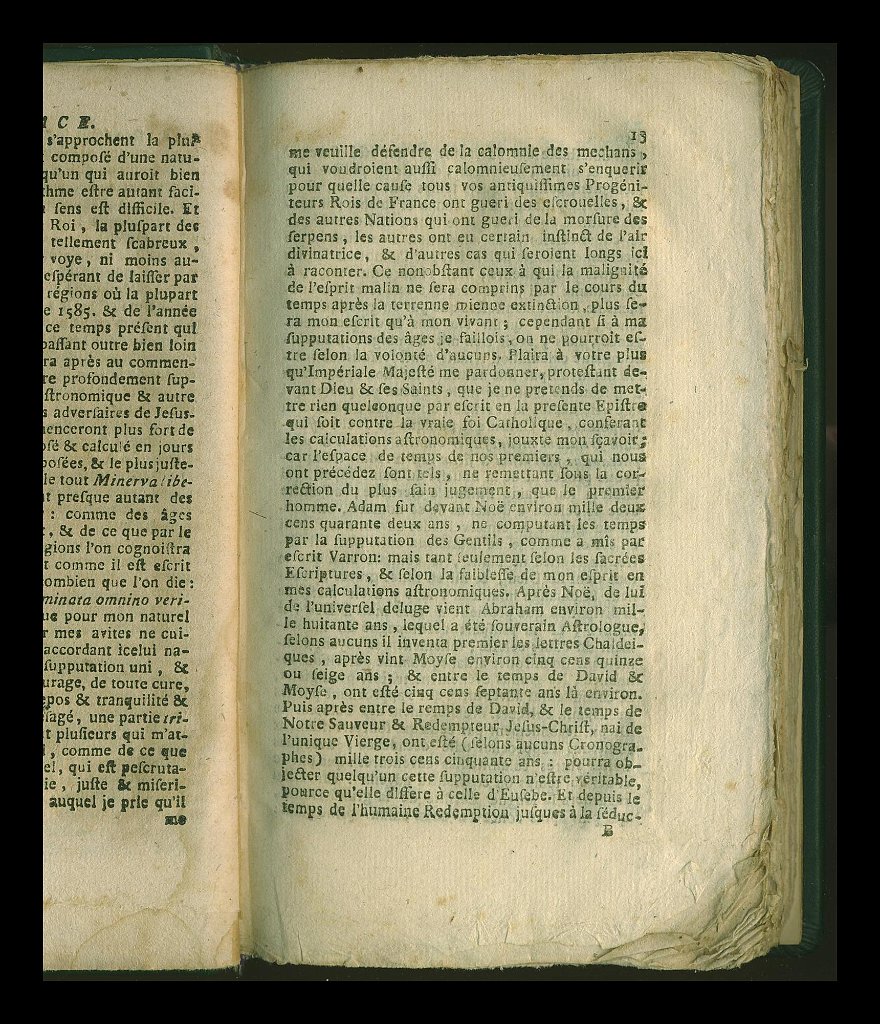 I C E.
s'approchent la plus
compoſé d'une natu-
qu'un qui auroit bien
hme eſtre autant faci-
ſens eſt difficile. Et
Roi, la pluſpart des
tellement ſcabreux,
voye, ni moins au-
eſpérant de laiſſer par
régions où la plupart
e 1585. & de l'année
ce temps préſent qui
paſſant outre bien loin
ra après au commen-
re profondement ſup-
ſtronomique & autre
s adverſaires de Jeſus-
enceront plus fort de
oſé & calculé en jours
poſées, & le plus juſte-
le tout Minerva libe-
t preſque autant des
: comme des âges
, & de ce que par le
gions l'on cognoiſtra
t comme il eſt eſcrit
ombien que l'on die:
minata omnino veri-
ue pour mon naturel
r mes avites ne cui-
accordant icelui na-
ſupputation uni, &
urage, de toute cure,
epos & tranquilité &
ſagé, une partie tri-
t pluſieurs qui m'at-
l, comme de ce que
el, qui eſt peſcruta-
ie, juſte & miſeri-
auquel je prie qu'il
me
13
me veuille défendre de la calomnie des mechans,
qui voudroient auſſi calomnieuſement s'enquerir
pour quelle cauſe tous vos antiquiſſimes Progéni-
teurs Rois de France ont gueri des eſcrouelles, &
des autres Nations qui ont gueri de la morſure des
ſerpens, les autres ont eu certain inſtinct de l'air
divinatrice, & d'autres cas qui ſeroient longs ici
à raconter. Ce nonobſtant ceux à qui la malignité
de l'eſprit malin ne ſera comprins par le cours du
temps après la terrenne mienne extinction, plus ſe-
ra mon eſcrit qu'à mon vivant; cependant ſi à ma
ſupputations des âges je faillois, on ne pourroit eſ-
tre ſelon la volonté d'aucuns. Plaira à votre plus
qu'Impériale Majeſté me pardonner, proteſtant de-
vant Dieu & ſes Saints, que je ne pretends de met-
tre rien quelconque par eſcrit en la preſente Epiſtre
qui ſoit contre la vraie foi Catholique, conferant
les calculations aſtronomiques, jouxte mon ſçavoir;
car l'eſpace de temps de nos premiers, qui nous
ont précédez ſont tels, ne remettant ſous la cor-
rection du plus ſain jugement, que le premier
homme. Adam fut devant Noë environ mille deux
cens quarante deux ans, ne computant les temps
par la ſupputation des Gentils, comme a mis par
eſcrit Varron: mais tant ſeulement ſelon les ſacrées
Eſcriptures, & ſelon la faibleſſe de mon eſprit en
mes calculations aſtronomiques. Après Noë, de lui
de l'univerſel deluge vient Abraham environ mil-
le huitante ans, lequel a été ſouverain Aſtrologue,
ſelons aucuns il inventa premier les lettres Chaldei-
ques, après vint Moyſe environ cinq cens quinze
ou ſeige ans; & entre le temps de David &
Moyſe, ont eſté cinq cens ſeptante ans là environ.
Puis après entre le remps de David, & le temps de
Notre Sauveur & Redempteur Jeſus-Chriſt, nai de
l'unique Vierge, ont eſté (ſelons aucuns Cronogra-
phes) mille trois cens cinquante ans: pourra ob-
jecter quelqu'un cette ſupputation n'eſtre véritable,
pource qu'elle differe à celle d'Euſebe. Et depuis le
temps de l'humaine Redemption juſques à la ſéduc-
B